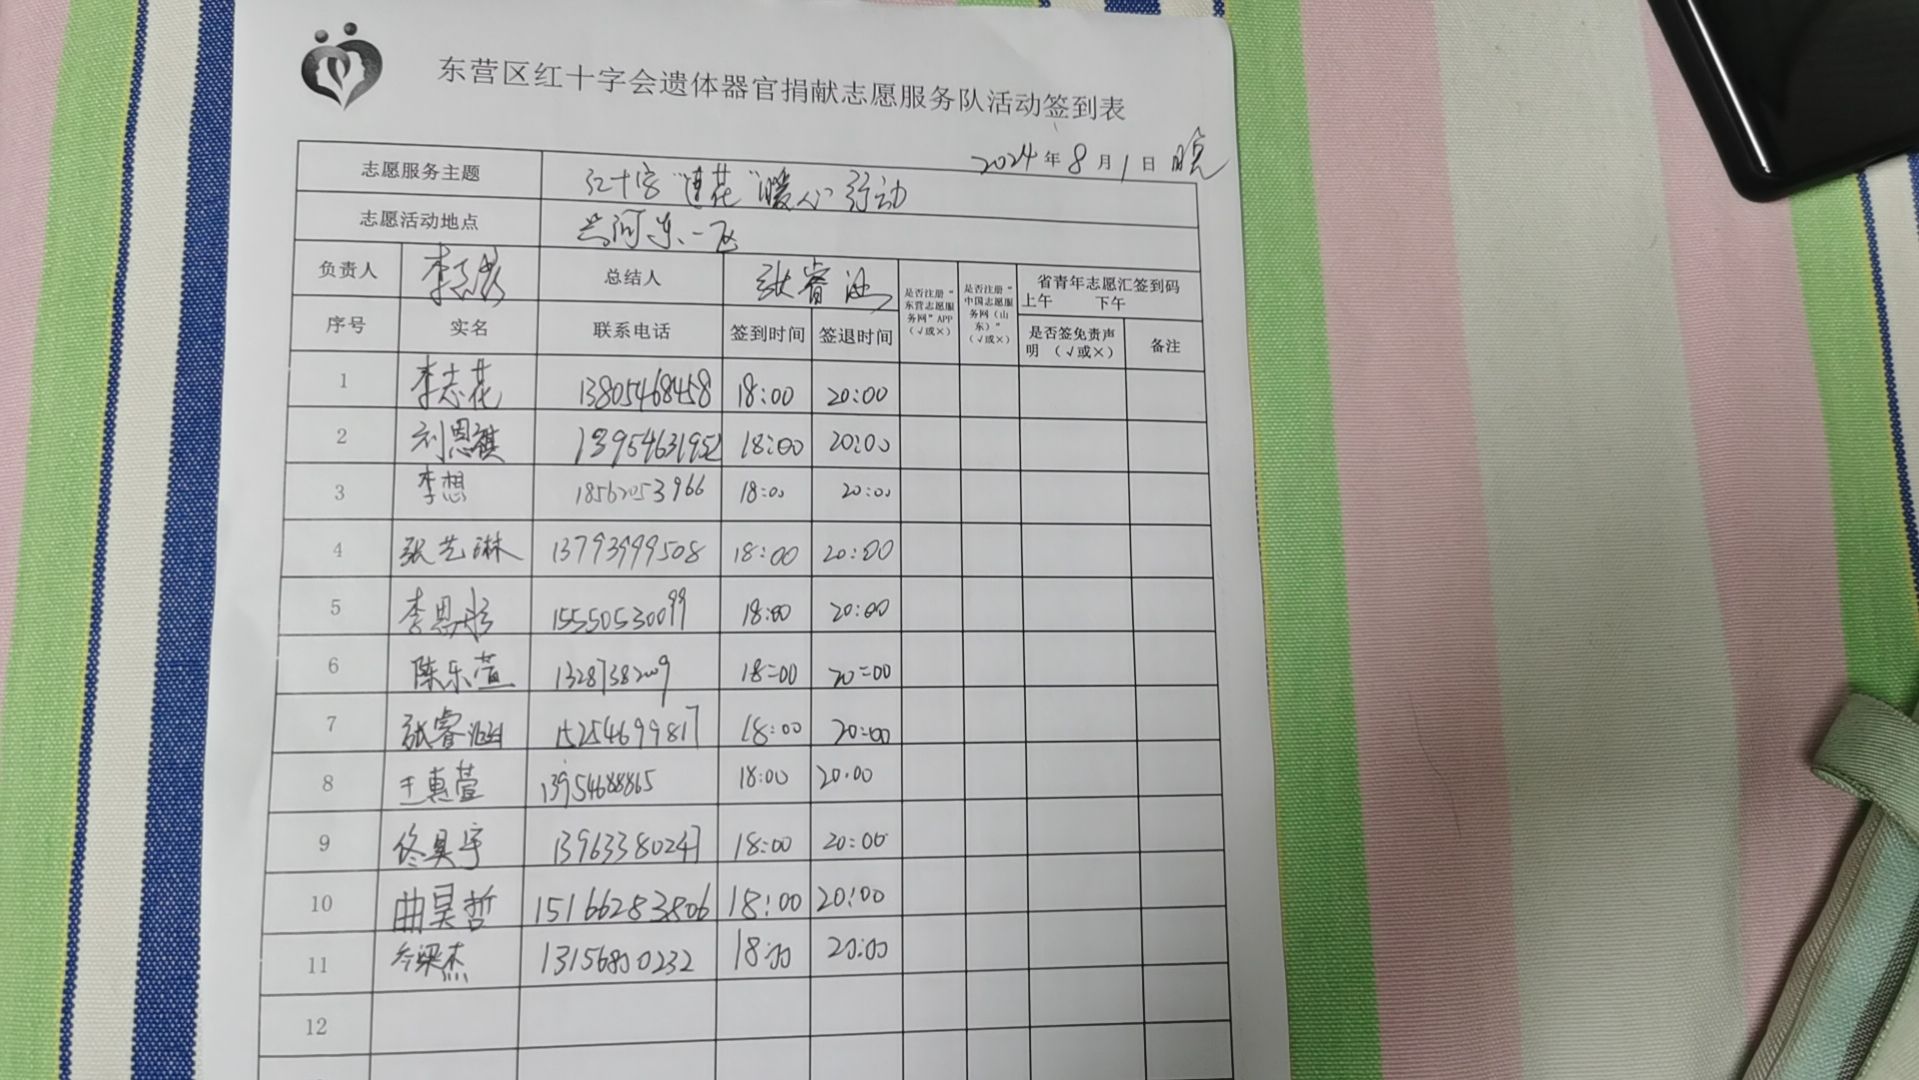 东营区红十字会遗体器官捐献志愿服务队活动签到表
2024年8月1日 晚
志愿服务主题 红十字“莲花”暖心行动
志愿活动地点 兴河东一区
负责人 李志花 总结人 张睿涵 是否注册“东营志愿服务网”APP（√或×） 是否注册“中国志愿服务网（山东）”（√或×） 省青年志愿汇签到码 上午 下午
序号 实名 联系电话 签到时间 签退时间 是否签免责声明 （√或×） 备注
1 李志花 13805468458 18:00 20:00
2 刘恩祺 13954631952 18:00 20:00
3 李想 18562053966 18:00 20:00
4 张艺琳 13793999508 18:00 20:00
5 李思彤 15550530099 18:00 20:00
6 陈乐萱 13287382009 18:00 20:00
7 张睿涵 15254699817 18:00 20:00
8 王惠萱 13954688865 18:00 20:00
9 佟昊宇 13963380247 18:00 20:00
10 曲昊哲 15166283806 18:00 20:00
11 梁杰 13156800232 18:00 20:00
12